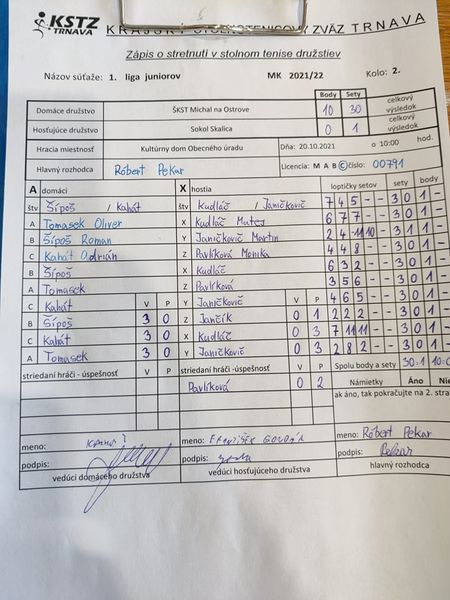 KSTZ TRNAVA KRAJSKÝ STOLNOTENISOVÝ ZVÄZ TRNAVA
Zápis o stretnutí v stolnom tenise družstiev
Názov súťaže: 1. liga juniorov MK 2021/22 Kolo: 2.
Body Sety
Domáce družstvo ŠKST Michal na Ostrove 10 30 celkový výsledok
Hosťujúce družstvo Sokol Skalica 0 1 celkový výsledok
Hracia miestnosť Kultúrny dom Obecného úradu Dňa: 20.10.2021 o 10:00 hod.
Hlavný rozhodca Róbert Pekar Licencia: M A B C číslo: 00791
A domáci X hostia loptičky setov sety body
štv Šípoš / Kahát štv Kudláč / Janičkovič 7 4 5 - - 3 0 1 -
A Tomasek Oliver X Kudláč Matej 6 7 7 - - 3 0 1 -
B Šípoš Roman Y Janičkovič Martin 2 4 -11 10 - 3 1 1 -
C Kahát Adrián Z Pavlíková Monika 4 4 8 - - 3 0 1 -
B Šípoš X Kudláč 6 3 2 - - 3 0 1 -
A Tomasek Z Pavlíková 3 5 6 - - 3 0 1 -
C Kahát V P Y Janičkovič V P 4 6 5 - - 3 0 1 -
B Šípoš 3 0 Z Jančík 0 1 2 2 2 - - 3 0 1 -
C Kahát 3 0 X Kudláč 0 3 7 11 11 - - 3 0 1 -
A Tomasek 3 0 Y Janičkovič 0 3 2 8 2 - - 3 0 1 -
striedaní hráči - úspešnosť V P striedaní hráči -úspešnosť V P Spolu body a sety 30:1 10:0
Pavlíková 0 2 Námietky Áno Nie
ak áno, tak pokračujte na 2. stra
meno: meno: František meno: Róbert Pekar
podpis: podpis: podpis: Pekar
vedúci domáceho družstva vedúci hosťujúceho družstva hlavný rozhodca